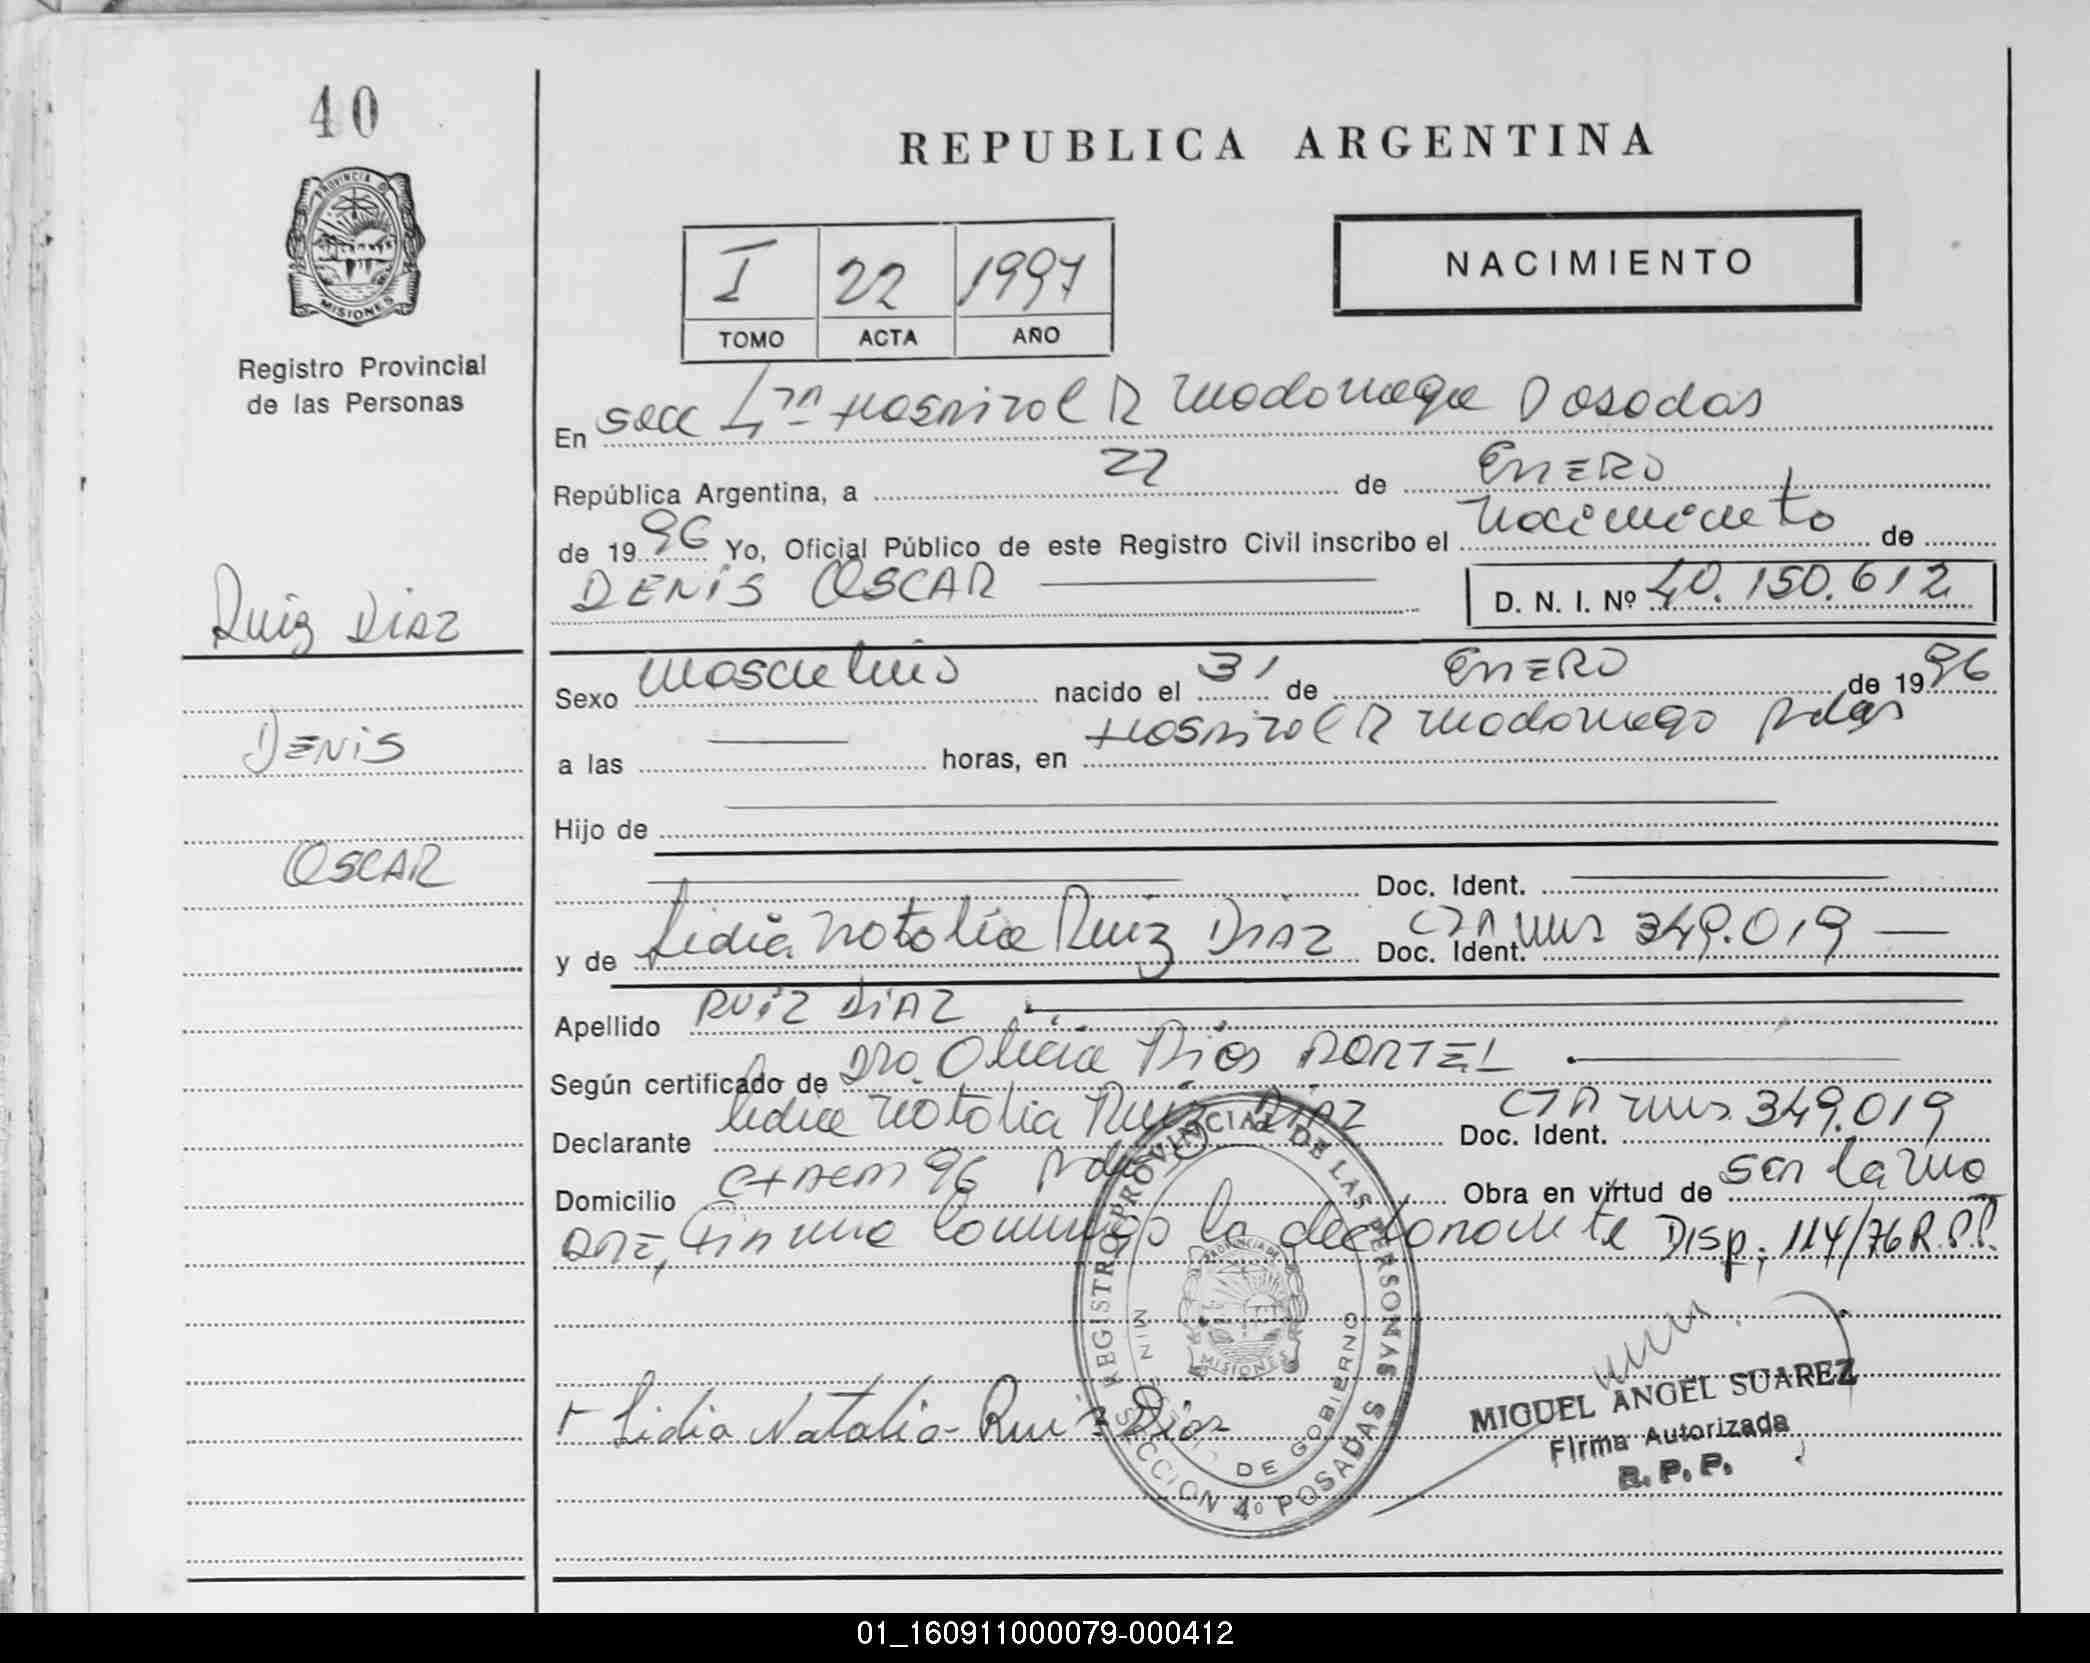 40
REPUBLICA ARGENTINA
PROVINCIA D
MISIONES
Registro Provincial
de las Personas
NACIMIENTO
I 22 1997
TOMO ACTA AÑO
En secc 4ta Hospital R Madariaga Posadas
República Argentina, a 22 de ENERO
de 1996 Yo, Oficial Público de este Registro Civil inscribo el nacimiento de
DENIS OSCAR D. N. I. Nº 40.150.612
Ruiz Diaz
DENIS
OSCAR
Sexo masculino nacido el 31 de ENERO de 1996
a las horas, en Hospital R Madariaga Pdas
Hijo de
Doc. Ident.
y de Lidia Natalia Ruiz Diaz Doc. Ident. 349.019
Apellido RUIZ DIAZ
Según certificado de Dra. Olicia Rios
Declarante Lidia Natalia Ruiz Diaz Doc. Ident. 349.019
Domicilio 96 Pdas Obra en virtud de ser la ma
dre, Firma conmigo la declarante Disp. 114/76 R.P.P.
REGISTRO PROVINCIAL DE LAS PERSONAS
DE GOBIERNO
MISIONES
SECCION 4º POSADAS
Lidia Natalia Ruiz Diaz
MIGUEL ANGEL SUAREZ
Firma Autorizada
R. P. P.
01_160911000079-000412